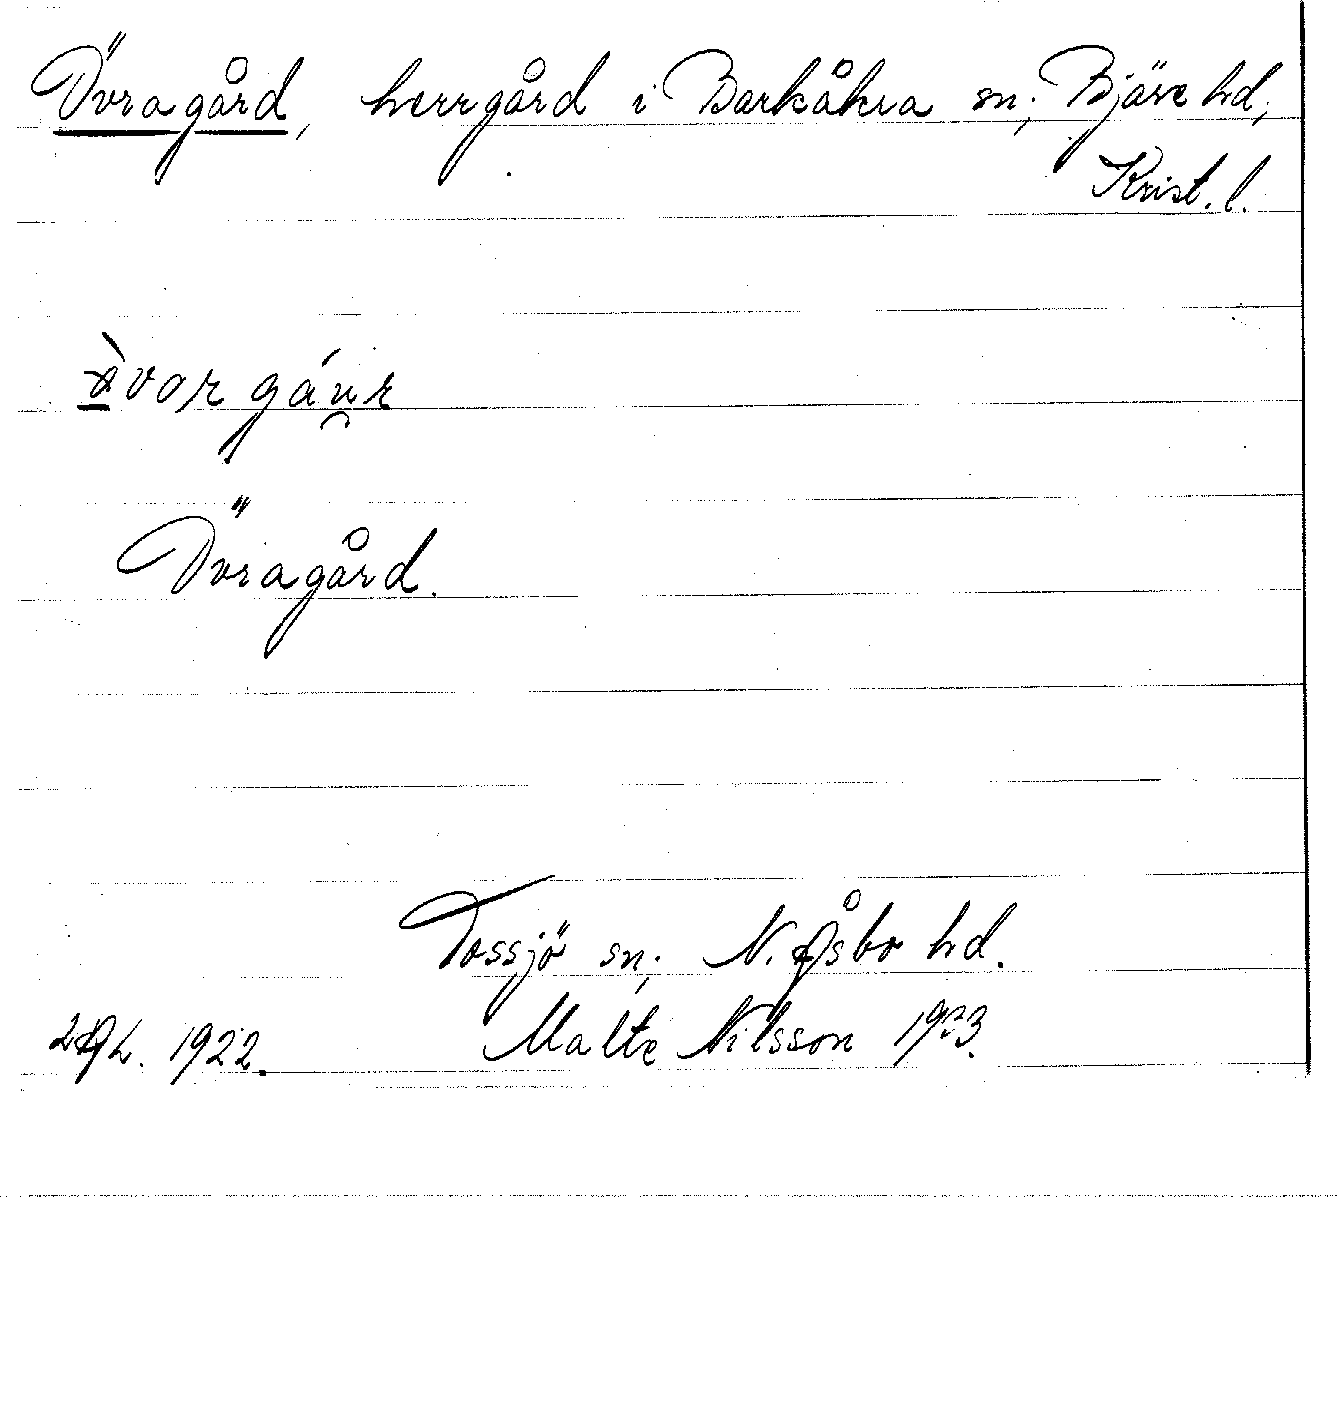 Övragård, herrgård i Barkåkra sn; Bjäre hd;
Krist. l.
Övragård.
Tossjö sn; N. Åsbo hd.
1922. Malte Nilsson 1923.